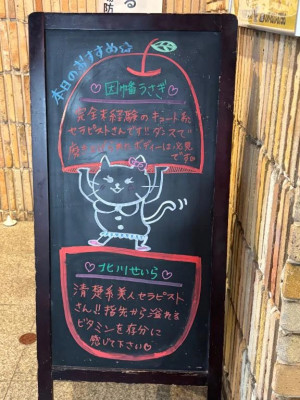 本日のおすすめ☆
♡因幡うさぎ♡
完全未経験のキュートな
セラピストさんです!!ダンスで
ボディーは必見
です
♡北川せいら♡
清楚系美人セラピスト
さん♪!指先から溢れる
ビタミンを存分に
感じて下さい♡
防